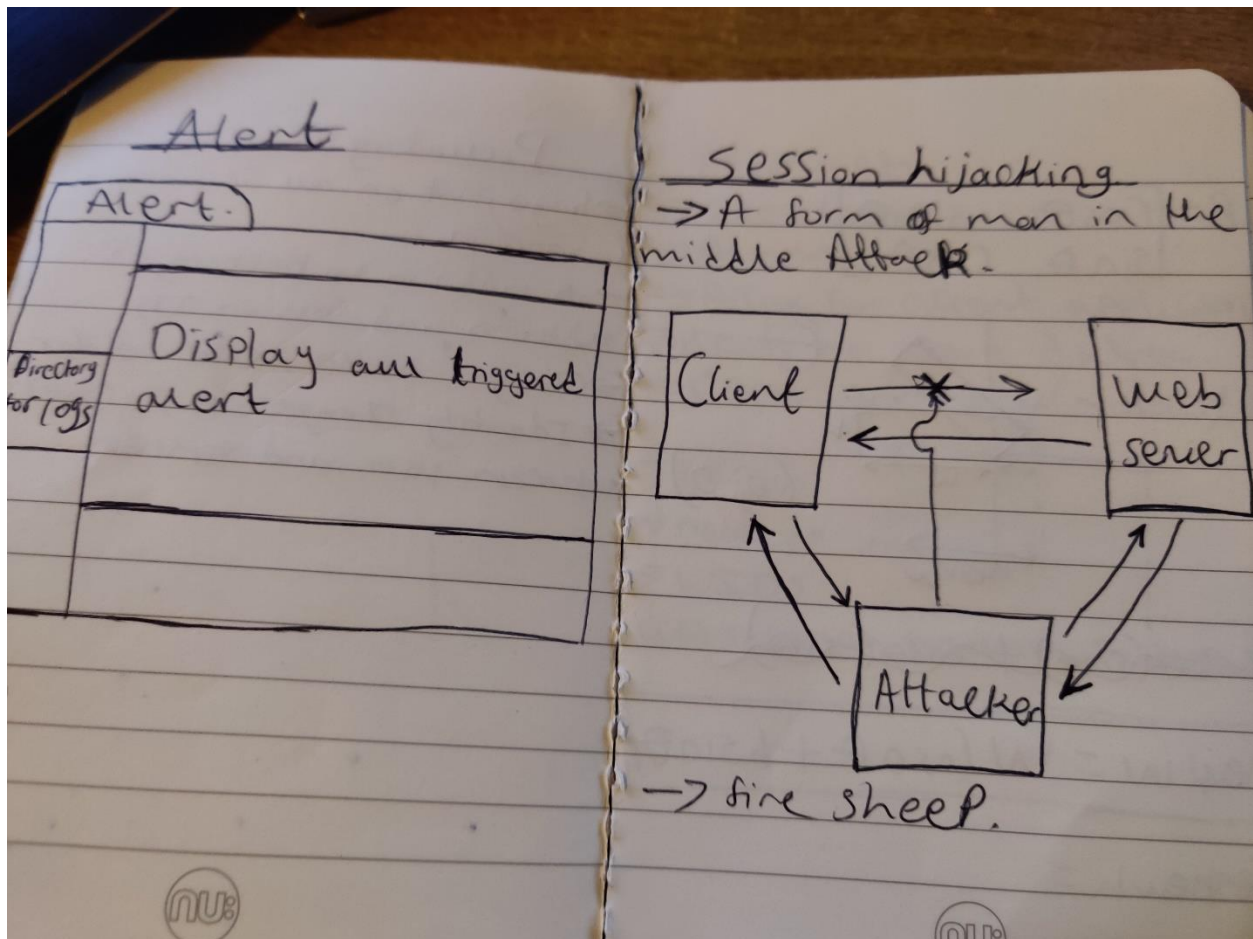 Alert
Alert.
Directory
for logs
Display all triggered
alert
Session hijacking
→ A form of man in the
middle Attack.
Client
web
server
Attacker
→ fire sheep.
nu:
nu: